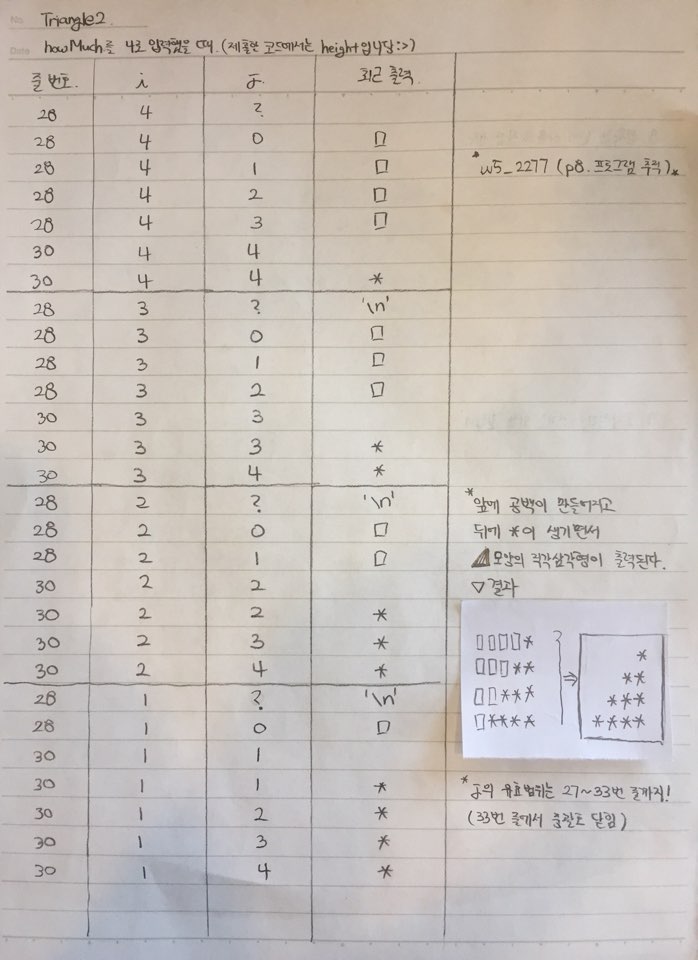 No. Triangle2.
Date. howMuch를 4로 입력했을 때. (제출한 코드에서는 height입니당:>)
줄 번호. i j. 최근 출력.
28 4 ?
28 4 0 □
28 4 1 □
28 4 2 □
28 4 3 □
30 4 4
30 4 4 *
28 3 ? '\n'
28 3 0 □
28 3 1 □
28 3 2 □
30 3 3
30 3 3 *
30 3 4 *
28 2 ? '\n'
28 2 0 □
28 2 1 □
30 2 2
30 2 2 *
30 2 3 *
30 2 4 *
28 1 ? '\n'
28 1 0 □
30 1 1
30 1 1 *
30 1 2 *
30 1 3 *
30 1 4 *
* w5_2277 (p8. 프로그램 추적) *
* 앞에 공백이 만들어지고
뒤에 *이 생기면서
모양의 직각삼각형이 출력된다.
▽ 결과
□□□□*
□□□**
□□***
□****
⇒
*
**
***
****
* j의 유효범위는 27~33번 줄까지!
(33번 줄에서 중괄호 닫힘)